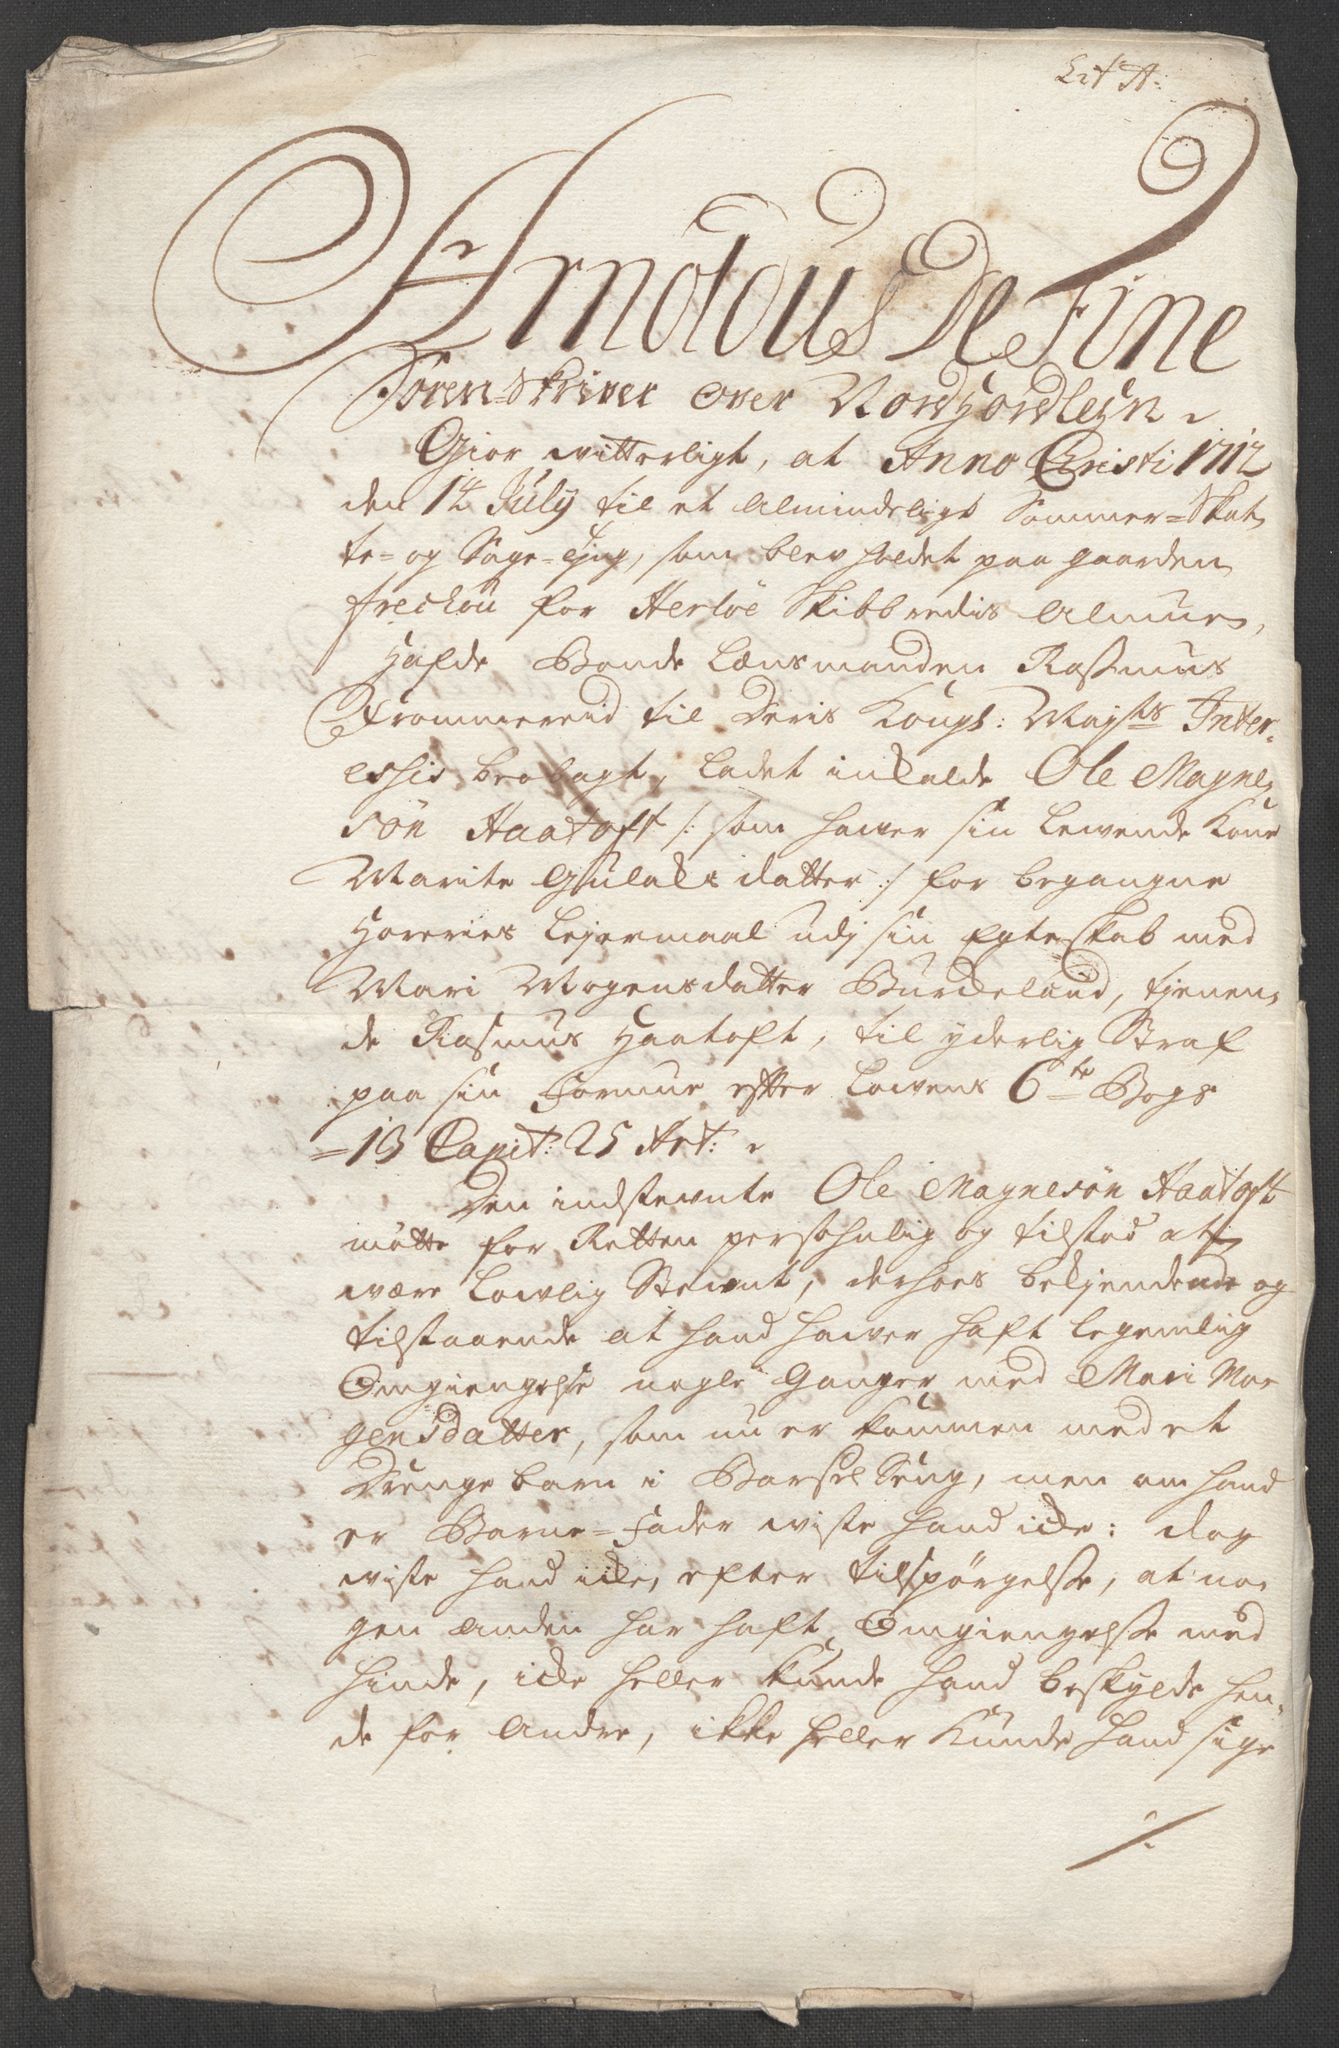 Lit A:
Arnoldus De Fine
Soren-Skriver over Nordhordlehn
Giør vitterligt, at Anno Christi 1712
den 14 July til et Almindeligt Sommer-Skat-
te- og Sage-Ting, som blev holdet paa gaarden
Frechou for Herløe Skibbredis Almue,
Hafde Bonde Lænsmanden Rasmus
Frommereid til Deris Kongl: Majts Inter-
essis beobagt, ladet indkalde Ole Magne-
søn Haatoft /: som hawer sin lewende Kone
Marite Gulaks datter :/ for begangne
Horeries Lejermaal udj sin Egteskab med
Mari Mogensdatter Burkeland, tjenen-
de Rasmus Haatoft, til yderlig Straf
paa sin Formue efter Lowens 6te Bogs
=13 Capit: 25 Art:
Den indstewnte Ole Magnesøn Haatoft
møtte for Retten persohnlig og tilstod at
wære Lowlig Stewnt, derhoes bekjendende og
tilstaaende at hand hawer haft legemlig
Omgiengelse nogle Ganger med Mari Mo-
gensdatter, som nu er kommen med et
Drenge barn i Barsel Seng, men om hand
er Barne-Fader wiste hand icke: dog
wiste hand icke, efter tilspørgelse, at no-
gen anden har haft Omgiengelse med
hinde, icke heller kunde hand beskylde hen-
de for Andre, ikke heller kunde hand sige
/.